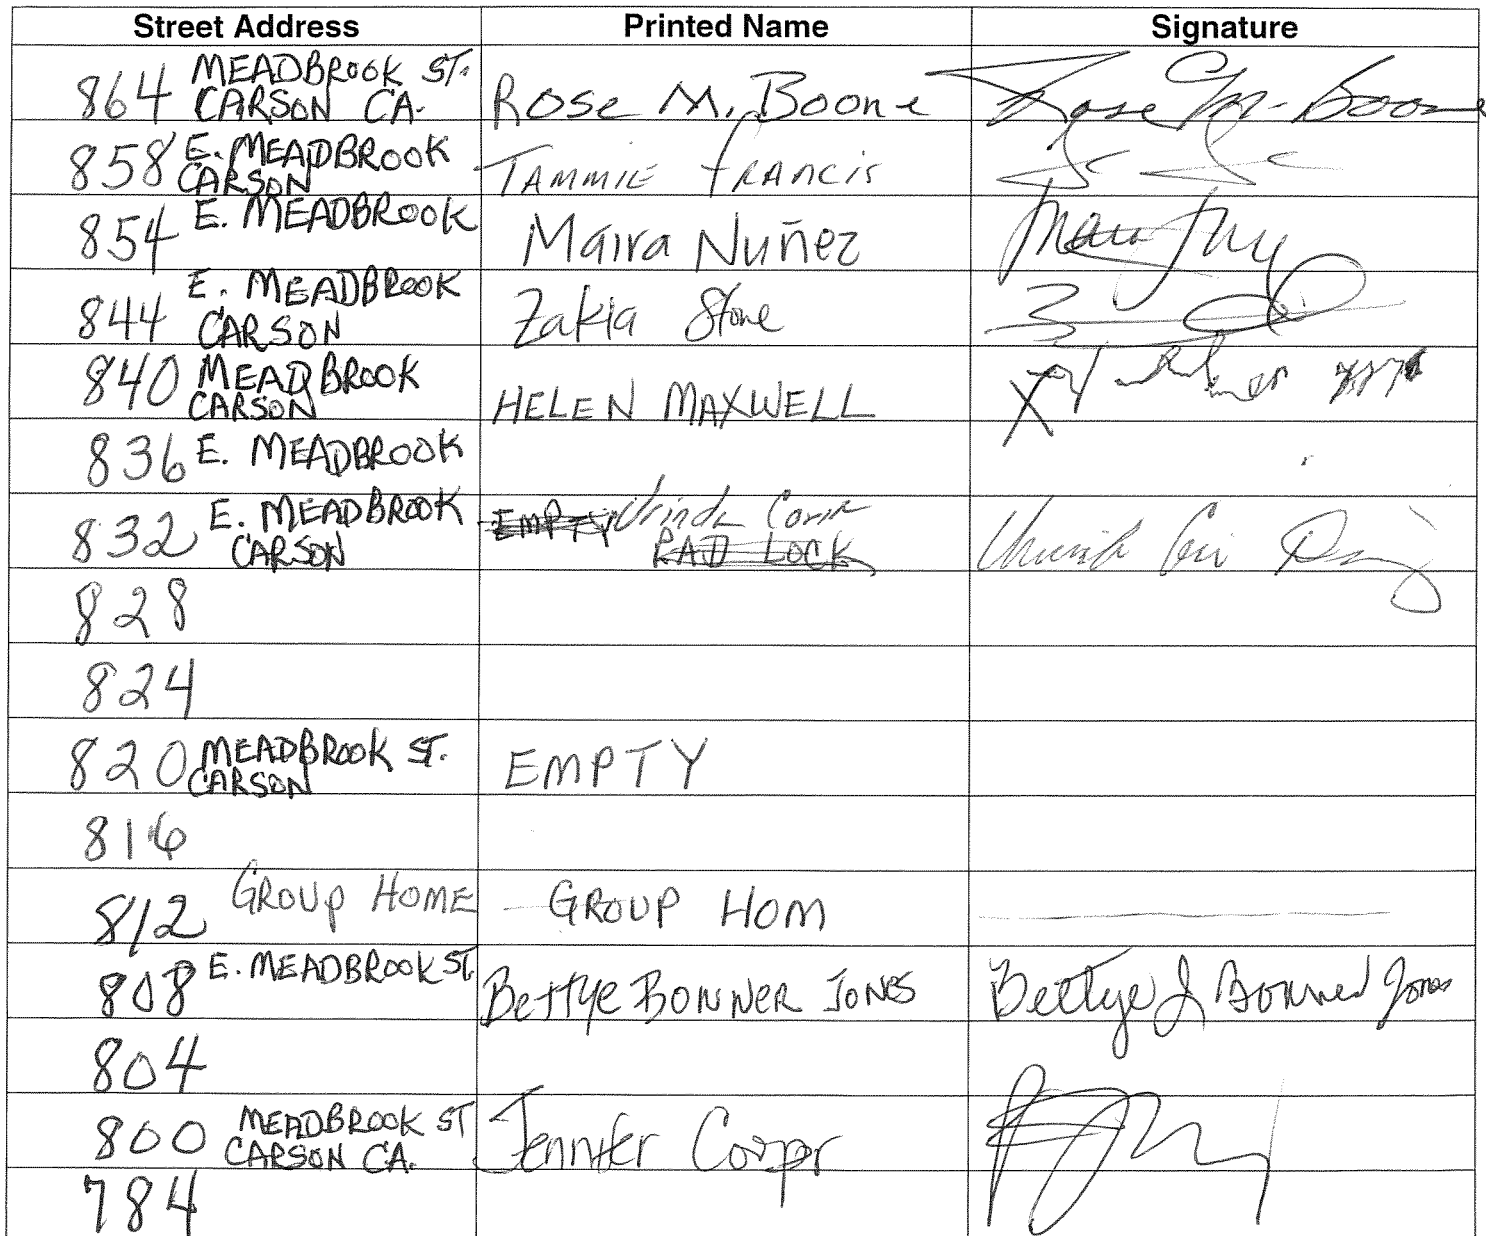 Street Address Printed Name Signature
864 MEADBROOK ST. CARSON CA. Rose M. Boone Rose M. Boone
858 E. MEADBROOK CARSON TAMMIE FRANCIS
854 E. MEADBROOK Maira Nuñez
844 E. MEADBROOK CARSON Zakia Stone
840 MEADBROOK CARSON HELEN MAXWELL X
836 E. MEADBROOK
832 E. MEADBROOK CARSON EMPTY PAD LOCK
828
824
820 MEADBROOK ST. CARSON EMPTY
816
812 GROUP HOME GROUP HOM
808 E. MEADBROOK ST. BettYe BONNER JONES Bettye J Bonner Jones
804
800 MEADBROOK ST CARSON CA. Jennifer Cooper
784